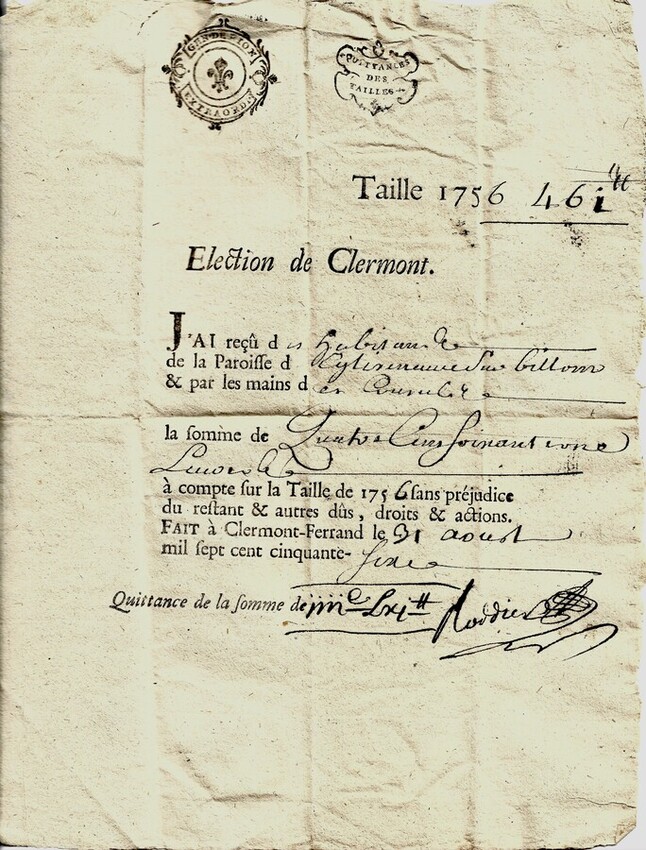 GEN. DE RIOM
EXTRAORDRE
QUITTANCES
DES
TAILLES
Taille 1756 461 ₶
Election de Clermont.
J'AI reçû des habitans de
de la Paroisse d'Eglisneuve sur billom
& par les mains d
la somme de Quatre Cens soixante une
Livres
à compte sur la Taille de 1756 sans préjudice
du restant & autres dûs, droits & actions.
FAIT à Clermont-Ferrand le 31 aoust
mil sept cent cinquante-sixe
Quittance de la somme de iiiiᶜ Lxi ₶